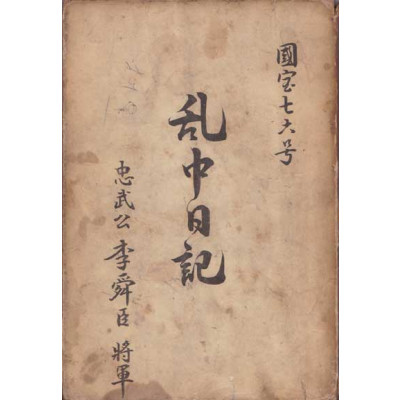 國宝七六号
乱中日記
忠武公 李舜臣 將軍